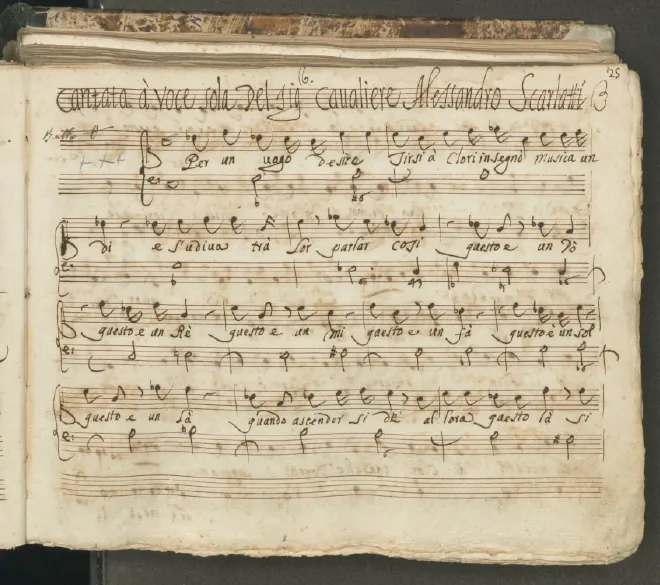 125
Cantata à voce sola Del Sig. Cavaliere Alessandro Scarlatti
Per un vago desire Tirsi à Clori insegnò musica un
di e s'udiva trà lor parlar così questo e un Dò
questo e un Rè questo e un mi questo e un fà questo è un sol
questo e un Là quando ascender si dè al lora questo là si